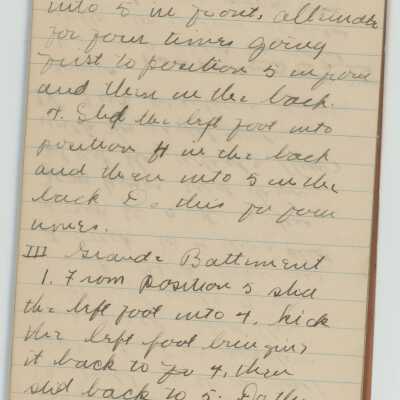 into 5 in front. alternate
for four times going
first to position 5 in front
and then in the back.
4. Slid the left foot into
position 4 in the back
and then into 5 in the
back Do this for four
times.
III Grande Battiment
1. From position 5 slid
the left foot into 4, kick
the left foot bringing
it back to 4, then
slid back to 5. Do this